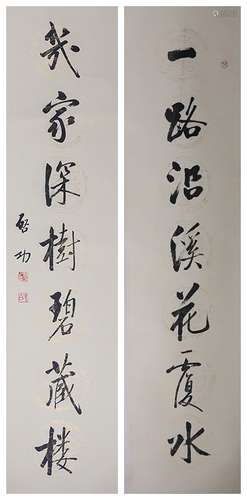 一路沿溪花覆水
幾家深樹碧藏楼
啓功